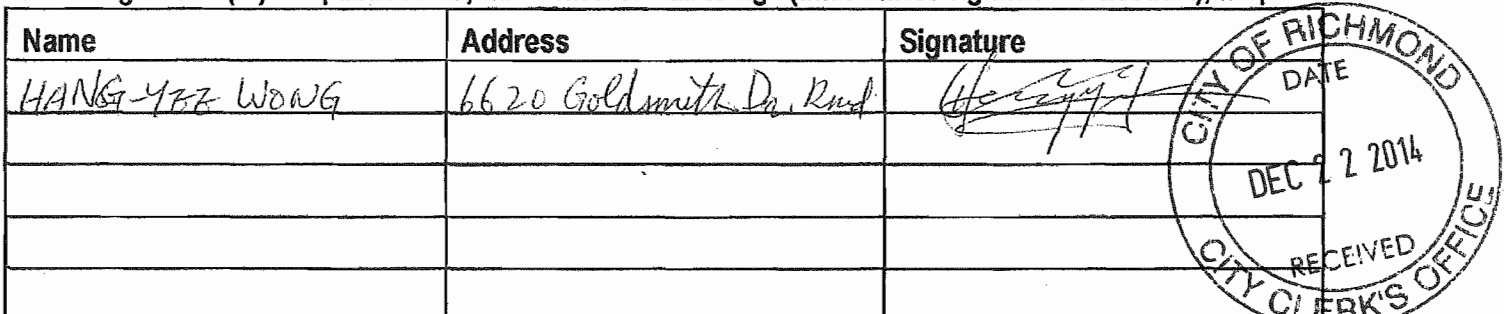 Name Address Signature
HANG-YEE WONG 6620 Goldsmith Dr. Rmd
CITY OF RICHMOND
DATE
DEC 22 2014
RECEIVED
CITY CLERK'S OFFICE